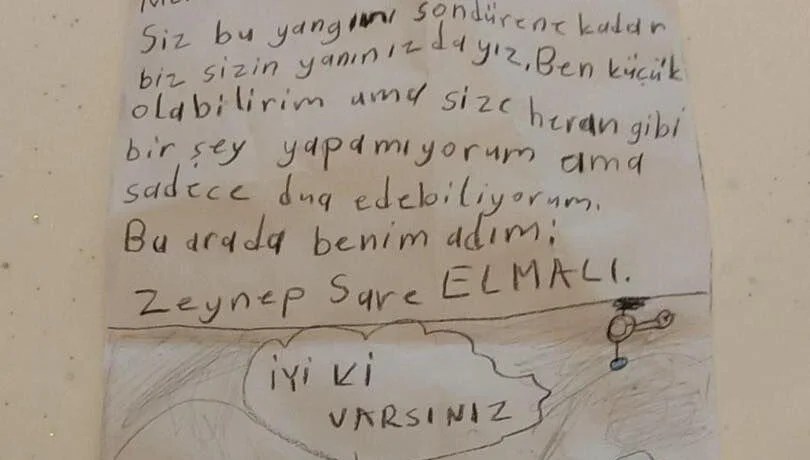 Siz bu yangını söndürene kadar
biz sizin yanınızdayız, Ben küçük
olabilirim ama size heran gibi
bir şey yapamıyorum ama
sadece dua edebiliyorum.
Bu arada benim adım:
Zeynep Sare ELMALI.
İYİ Kİ
VARSINIZ